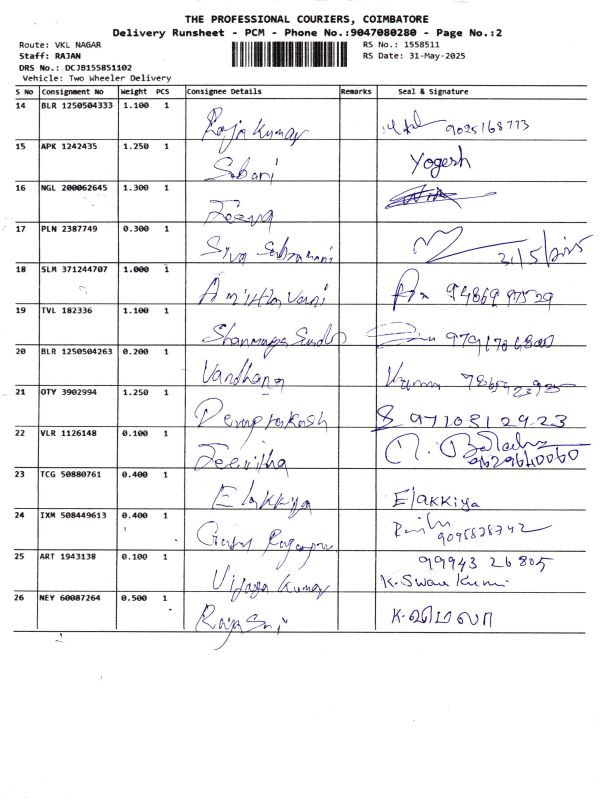 THE PROFESSIONAL COURIERS, COIMBATORE
Delivery Runsheet - PCM - Phone No.:9047080280 - Page No.:2
Route: VKL NAGAR RS No.: 1558511
Staff: RAJAN RS Date: 31-May-2025
DRS No.: DCJB155851102
Vehicle: Two Wheeler Delivery
S No Consignment No Weight PCS Consignee Details Remarks Seal & Signature
14 BLR 1250504333 1.100 1
Raja Kumar 9025168773
15 APK 1242435 1.250 1
Sobani Yogesh
16 NGL 200062645 1.300 1
Jeeva
17 PLN 2387749 0.300 1
Siva Subramani 31/5/2025
18 SLM 371244707 1.000 1
Amirthavani 94869 97529
19 TVL 182336 1.100 1
Shanmuga Sundar
20 BLR 1250504263 0.200 1
Vandhana
21 OTY 3902994 1.250 1
Devaprakash 97108129-23
22 VLR 1126148 0.100 1
Jeevitha 9629640060
23 TCG 50880761 0.400 1
Elakkiya Elakkiya
24 IXM 508449613 0.400 1
25 ART 1943138 0.100 1
99943 26805
Vijaya Kumar
26 NEY 60087264 0.500 1
K. விமலா